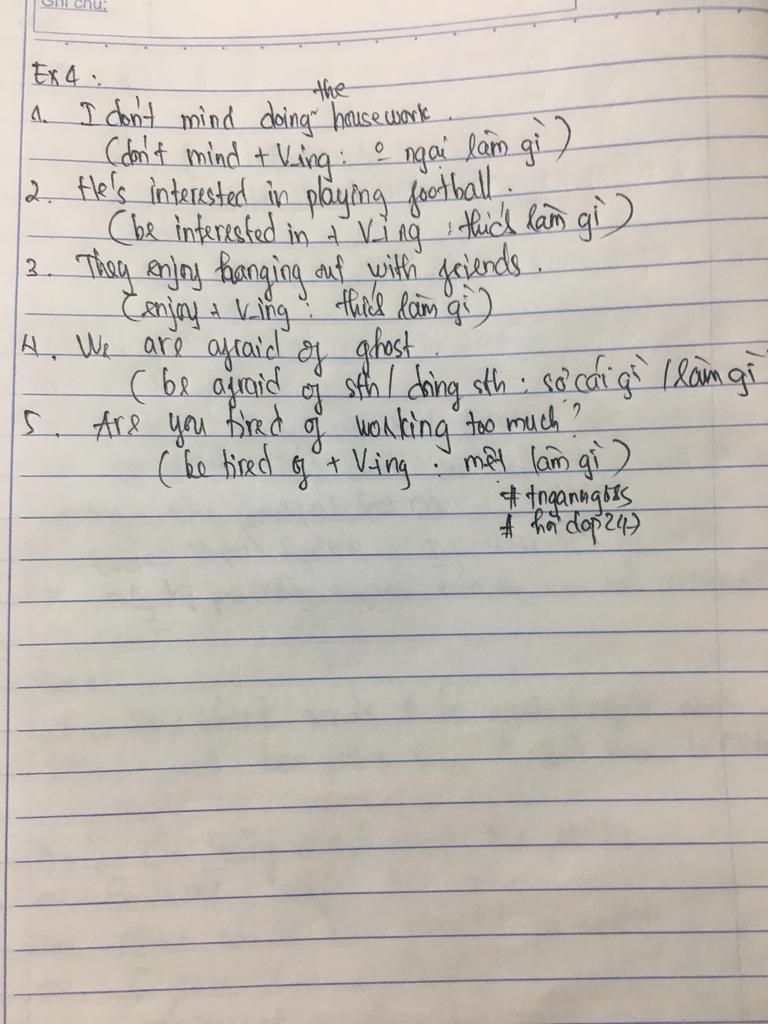 Ghi chú:
Ex 4 :
1. I don't mind doing the housework.
(don't mind + Ving : o ngại làm gì)
2. He's interested in playing football.
(be interested in + Ving : thích làm gì)
3. They enjoy hanging out with friends.
(enjoy + Ving : thích làm gì)
4. We are afraid of ghost.
(be afraid of sth / doing sth : sợ cái gì / làm gì
5. Are you tired of working too much?
(be tired of + Ving : mệt làm gì)